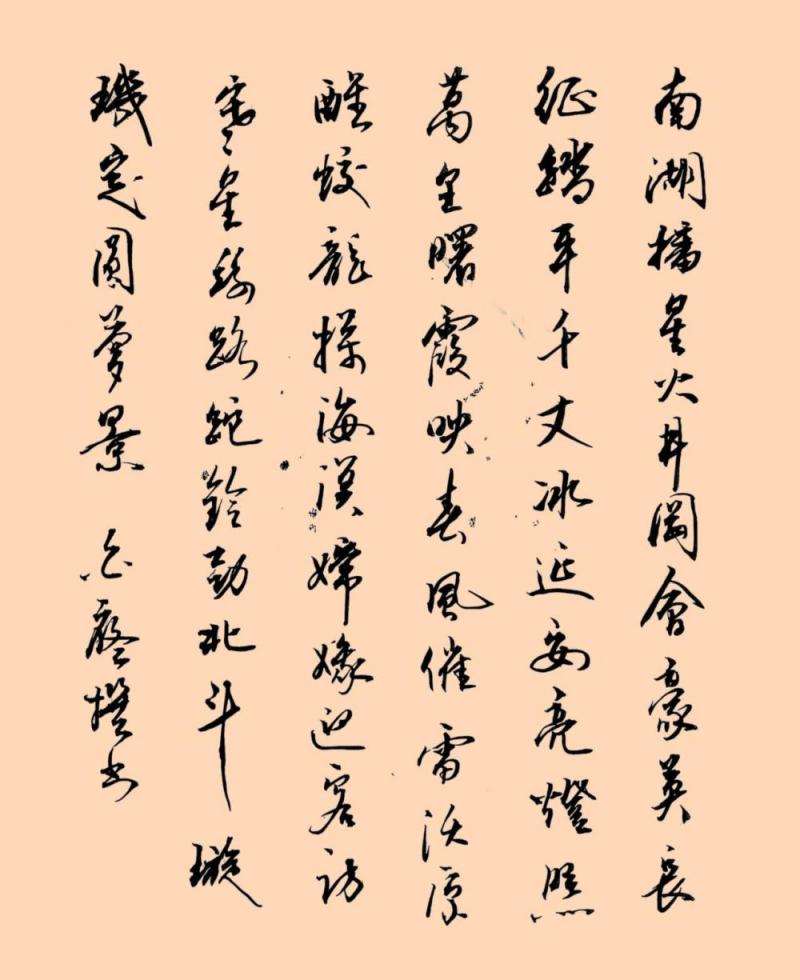 南湖播星火井岡會豪英長
征踏平千丈冰延安亮燈照
萬里曙霞映春風催雷沃原
醒蛟龍探海溟嫦娥迎客訪
寒星絲路駝鈴勁北斗璇
璣定圓夢景 撰書